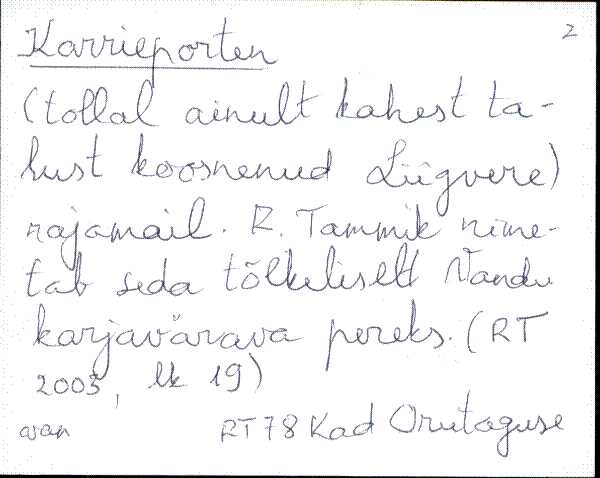 Karrieporten 2
(tollal ainult kahest ta-
lust koosnenud Liigvere)
rajamail. R. Tammik nime-
tab seda tõlkeliselt Vandu
karjavärava pereks. (RT
2003, lk 19)
RT78 Kad Orutaguse